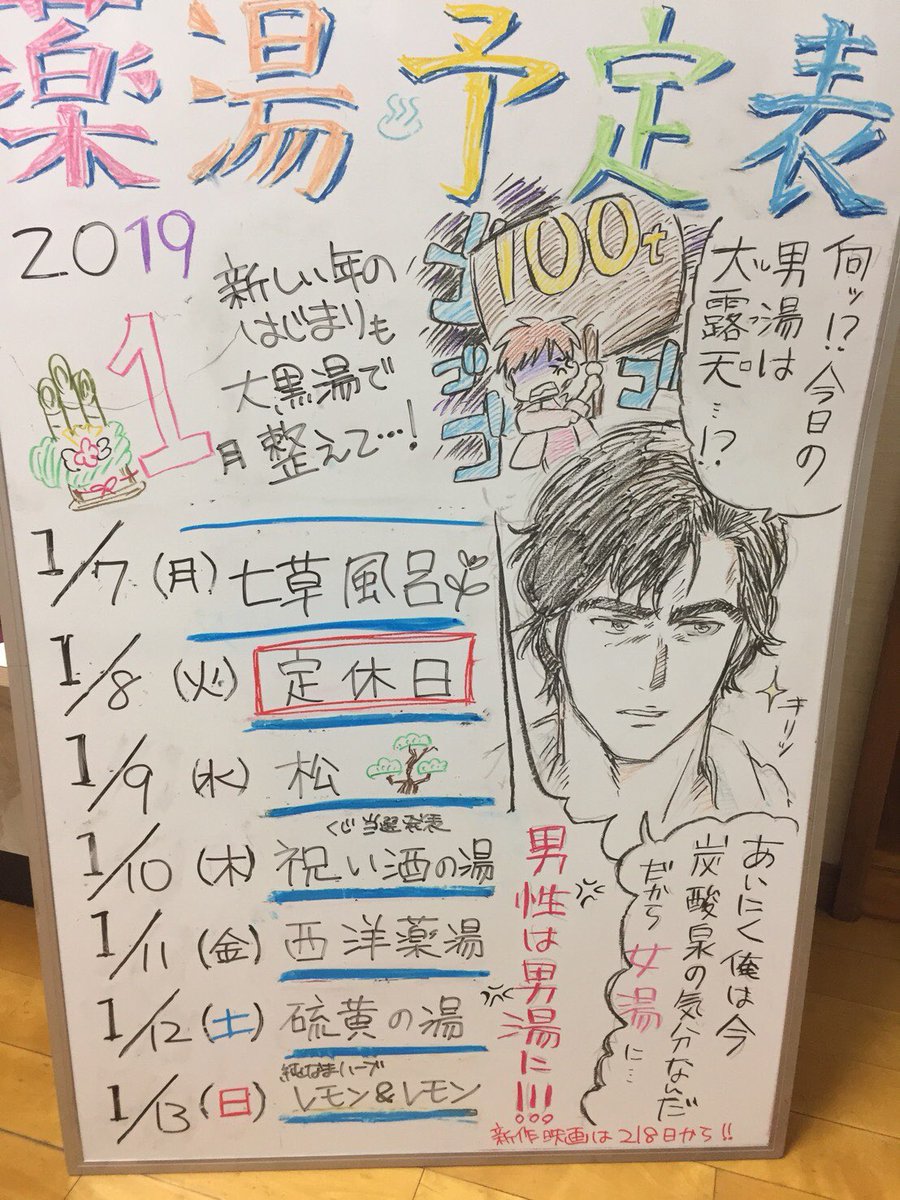 薬湯♨予定表
2019
1月
新しい年の
はじまりも
大黒湯で
整えて…!
100t
ゴゴゴゴ
何ッ!?今日の
男湯は
大露天…!?
キリッ
1/7(月)七草風呂
1/8(火)定休日
1/9(水)松
くじ当選発表
1/10(木)祝い酒の湯
1/11(金)西洋薬湯
1/12(土)硫黄の湯
純なまハーブ
1/13(日)レモン&レモン
あいにく俺は今
炭酸泉の気分なんだ
だから女湯に…
男性は男湯に!!!
新作映画は2/8日から!!